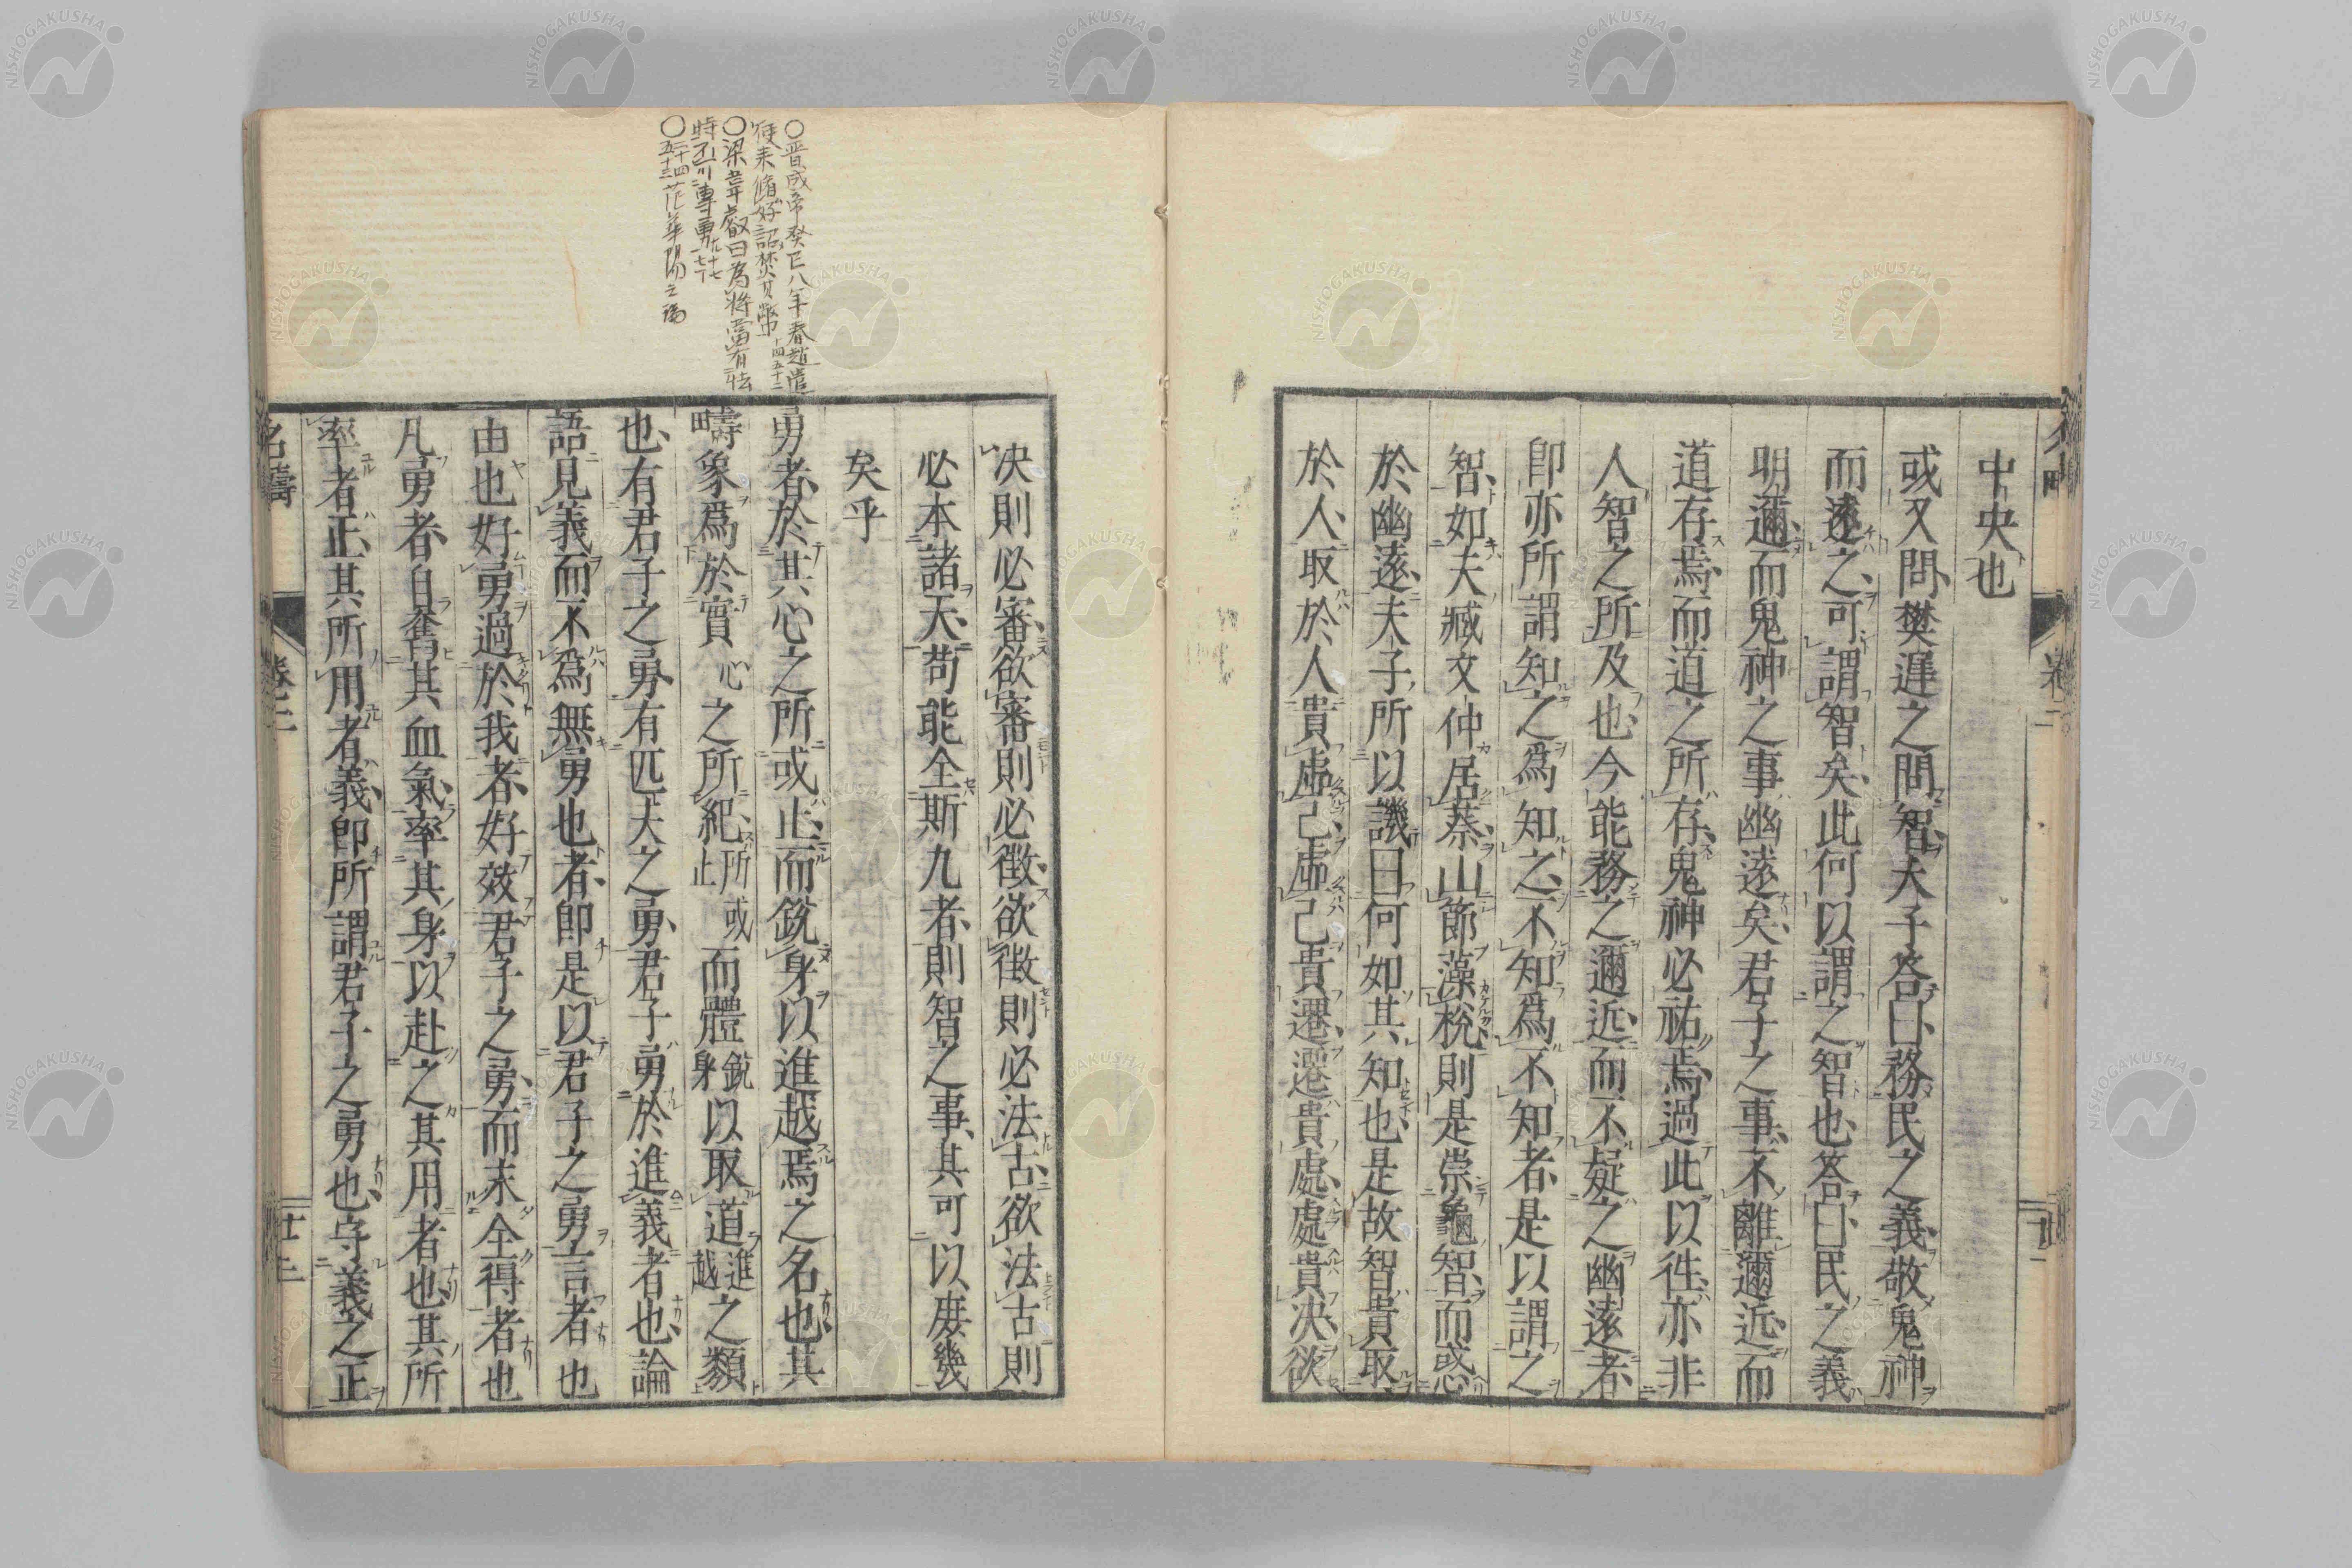 中央也
或又問樊遲之問智夫子答曰務民之義敬鬼神
而遠之可謂智矣此何以謂之智也答曰民之義
明邇而鬼神之事幽遠矣君子之事不離邇近而
道存焉而道之所存鬼神必祐焉過此以徃亦非
人智之所及也今能務之邇近而不疑之幽遠者
卽亦所謂知之爲知之不知爲不知者是以謂之
智如夫臧文仲居蔡山節藻梲則是崇龜智而惑
於幽遠夫子所以譏曰何如其知也是故智貴取
於人取於人貴虛己虛己貴遷遷貴處處貴決欲
決則必審欲審則必徵欲徵則必法古欲法古則
必本諸天苟能全斯九者則智之事其可以庶幾
矣乎
勇者於其心之所或止而銳身以進越焉之名也其
疇象爲於實心之所紀所或止而體銳身以取道進越之類
也有君子之勇有匹夫之勇君子勇於進義者也論
語見義而不爲無勇也者卽是以君子之勇言者也
由也好勇過於我者好效君子之勇而未全得者也
凡勇者自奮其血氣率其身以赴之其用者也其所
率者正其所用者義卽所謂君子之勇也守義之正
名疇
卷二
○晋成帝癸巳八年春趙遣
使来脩好詔焚其幣 十四五十二
○梁韋叡曰為將當有怯
時不可專勇
NISHOGAKUSHA